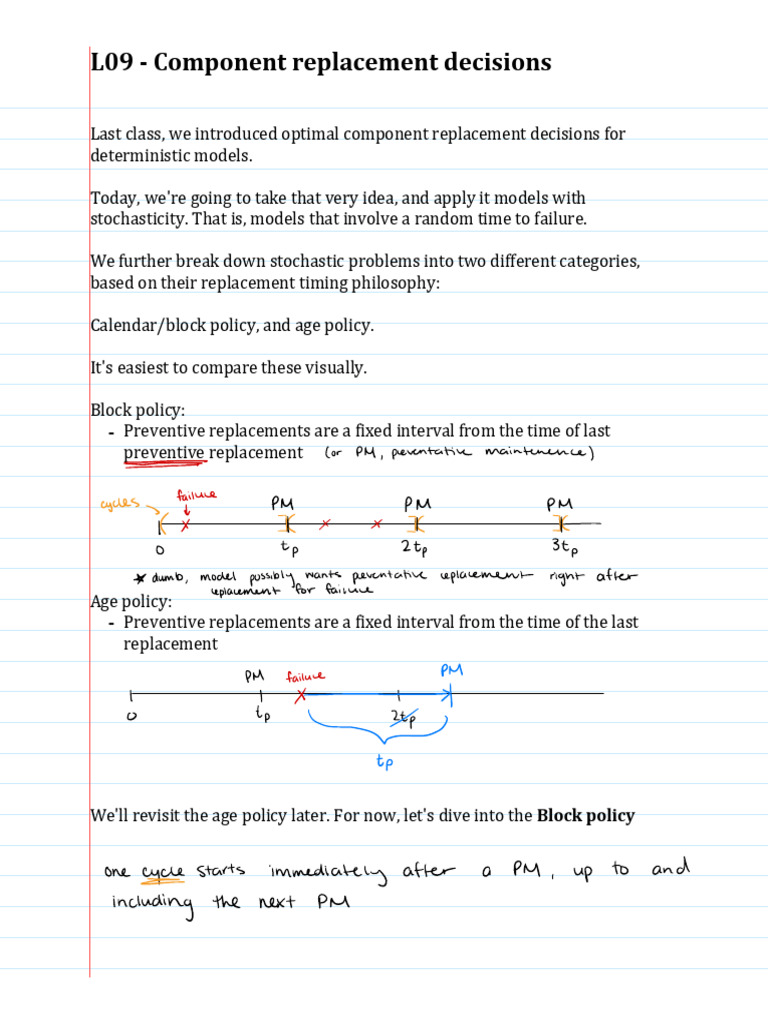 L09 - Component replacement decisions
Last class, we introduced optimal component replacement decisions for
deterministic models.
Today, we're going to take that very idea, and apply it models with
stochasticity. That is, models that involve a random time to failure.
We further break down stochastic problems into two different categories,
based on their replacement timing philosophy:
Calendar/block policy, and age policy.
It's easiest to compare these visually.
Block policy:
- Preventive replacements are a fixed interval from the time of last
preventive replacement (or PM, peventative maintenence)
cycles failure PM PM PM
0 tp 2tp 3tp
* dumb, model possibly wants peventative replacement right after
replacement for failure
Age policy:
- Preventive replacements are a fixed interval from the time of the last
replacement
PM failure PM
0 tp 2tp
tp
We'll revisit the age policy later. For now, let's dive into the Block policy
one cycle starts immediately after a PM, up to and
including the next PM